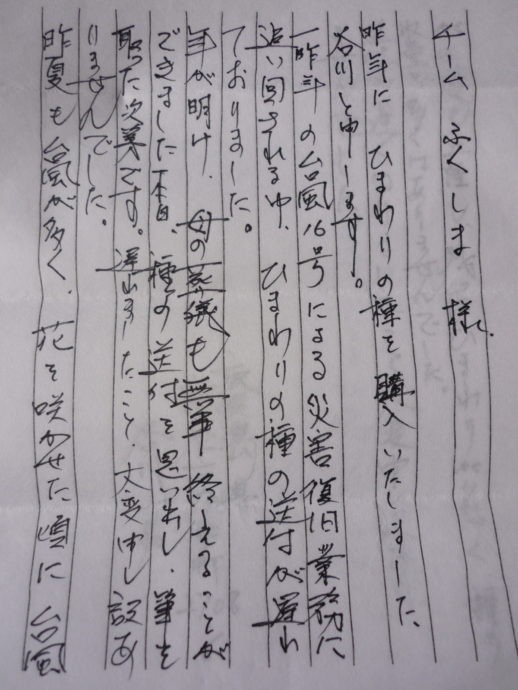 チームふくしま 様
昨年に ひまわりの種を 購入いたしました
谷川と申します。
一昨年の台風16号による災害復旧業務に
追い回される中、ひまわりの種の送付が遅れ
ておりました。
年が明け、母の葬儀も無事終えることが
できました本日、種の送付を思い出し、筆を
取った次第です。遅れましたこと、大変申し訳あ
りませんでした。
昨夏も台風が多く、花を咲かせた頃に台風